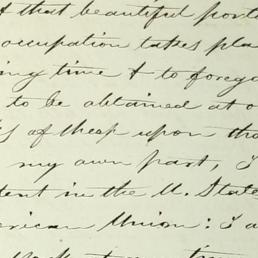 t that beautiful port
occupation takes pla
ing time & to forego
to be obtained at o
s of them upon tha
my own part, I
tent in the U. State
erican Union: I a